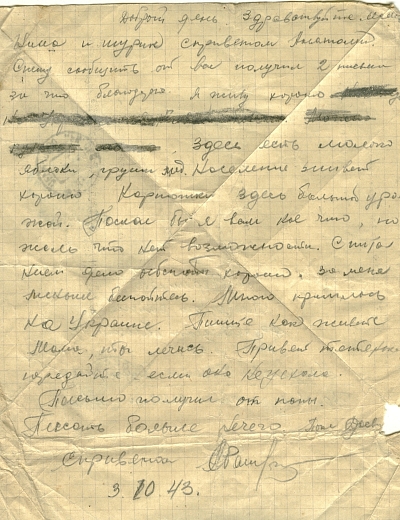 Добрый день Здравствуйте.
и Шурик с приветом Анатолий
сообщить от вас получил 2 письма
за что благодарю. Я живу хорошо
Здесь есть молоко
яблоки, груши мёд. Население живет
хорошо Картошки здесь большой уро-
жай. Послал бы я вам кое что, но
жаль что нет возможности. С пита-
нием дело обстоит хорошо, за меня
меньше беспокойтесь. Много
на Украине. Пишите как живете
Мама, ты лечись. Привет
передайте если она
Письмо получил от папы.
Писать больше нечего
С приветом
3. 10 43.